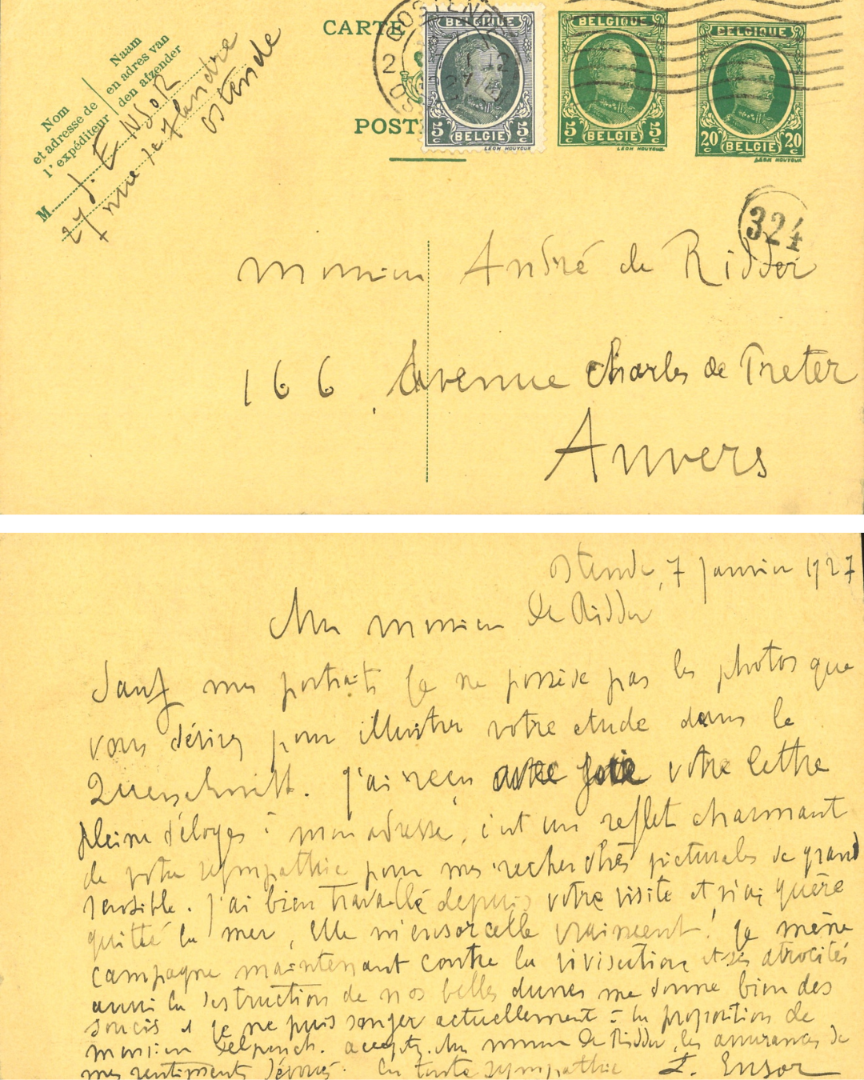 Nom
et adresse de
l'expéditeur
Naam
en adres van
den afzender
M J. ENSOR
27 rue de Flandre
Ostende
CARTE
POST
OOSTENDE
BELGIQUE
5 BELGIE 5
BELGIQUE
5 BELGIE 5
BELGIQUE
20 BELGIE 20
324
Monsieur André de Ridder
166 Avenue Charles de Preter
Anvers
Ostende, 7 Janvier 1927
Cher Monsieur De Ridder
Sauf mes portraits je ne possède pas les photos que
vous désirez pour illustrer votre etude dans le
Querschnitt. J'ai reçu avec joie votre lettre
pleine d'éloges à mon adresse, c'est un reflet charmant
de votre sympathie pour mes recherches picturales de grand
sensible. J'ai bien travaillé depuis votre visite et n'ai guère
quitté la mer, Elle m'ensorcelle vraiment! Je mène
campagne maintenant contre la vivisection et ses atrocités
aussi la destruction de nos belles dunes me donne bien des
soucis et je ne puis songer actuellement à la proposition de
monsieur acceptez cher monsieur De Ridder, les assurances de
mes sentiments dévoués. En toute sympathie J. Ensor